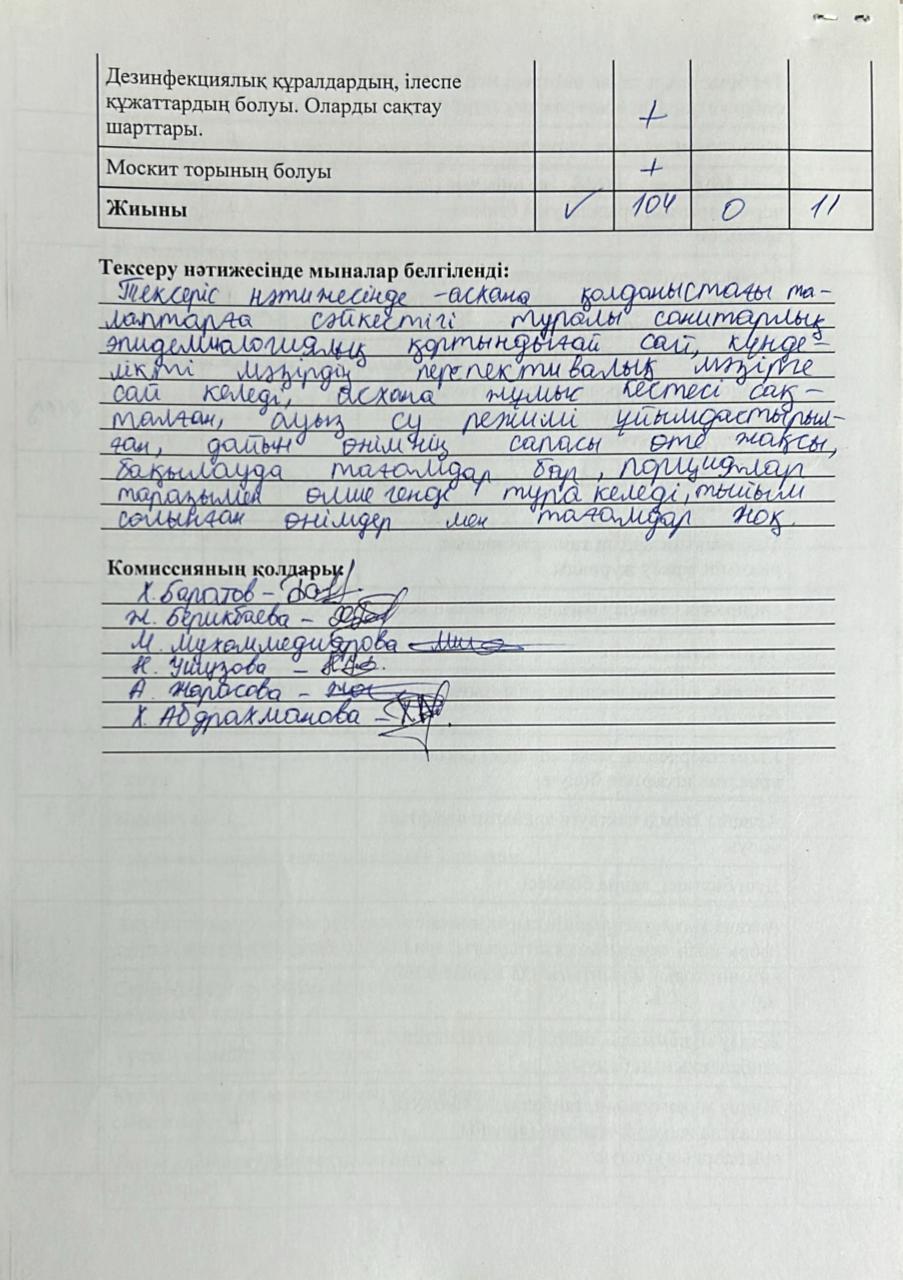 Дезинфекциялық құралдардың, ілеспе
құжаттардың болуы. Оларды сақтау
шарттары. +
Москит торының болуы +
Жиыны ✓ 104 0 11
Тексеру нәтижесінде мыналар белгіленді:
Тексеріс нәтижесінде -асхана қолданыстағы та-
лаптарға сәйкестігі туралы санитарлық
эпидемиалогиялық қортындығай сай, күнде-
лікті мәзірдің перспективалық мәзірге
сай келеді, асхана жұмыс кестесі сақ-
талған, ауыз су режимі ұйымдастырыл-
ған, дайын өнімнің сапасы өте жақсы,
бақылауда тағамдар бар, порциялар
таразымен өлшегенде тура келеді, тыйым
салынған өнімдер мен тағамдар жоқ.
Комиссияның қолдары:
Х. Баратов -
Ж. Берикбаева -
М. Мухаммедиярова
Н.
А. Жарасова -
Х. Абдрахманова -